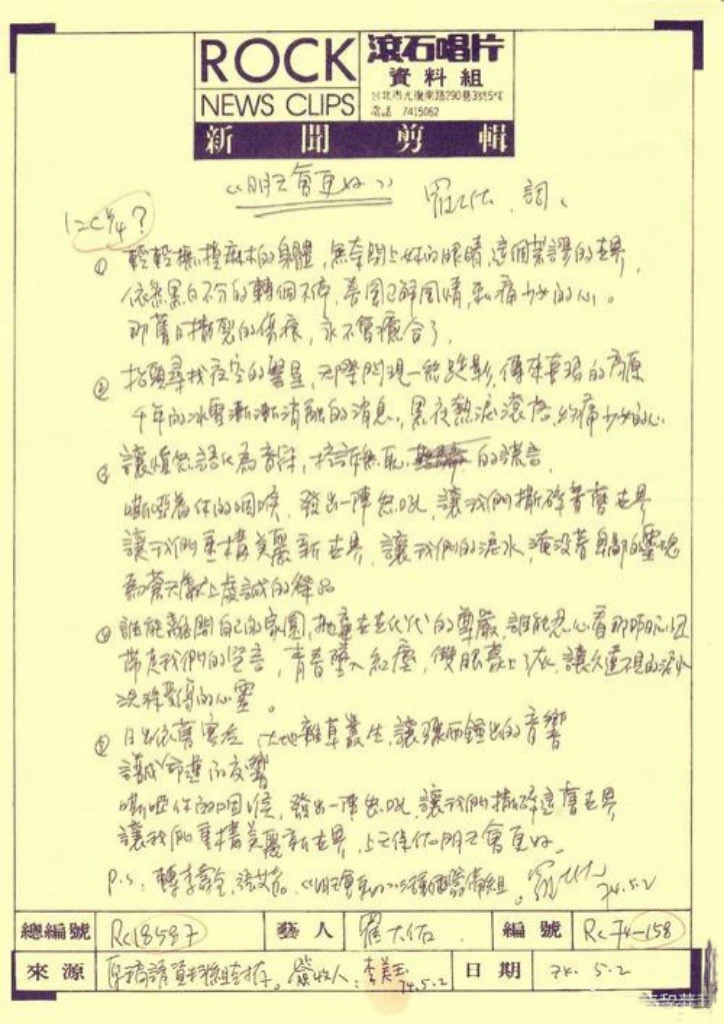 ROCK
NEWS CLIPS
滾石唱片
資料組
台北市光復南路290巷3號5F
電話 7415062
新聞剪輯
《明天會更好》 羅大佑 詞、
1=C 4/4?
① 輕輕撫摸麻木的身體,無奈閉上妳的眼睛,這個荒謬的世界,
依然黑白不分的轉個不停,春風不解風情,刺痛少女的心。
那舊日撕裂的傷痕,永不會癒合了,
② 抬頭尋找夜空的繁星,天際閃現一絲跌影,傳來喜瑪的高原
千年的冰雪漸漸消融的消息,黑夜熱淚滾落,灼痛少女的心
③ 讓憤怒語化為音符,控訴無恥的謊言,
嘶啞著你的咽喉,發出一陣怒吼,讓我們撕碎舊世界
讓我們重構美麗新世界,讓我們的淚水,淹沒卑鄙的靈魂
為蒼天獻上虔誠的祭品
④ 誰能離開自己的家園,拋棄世世代代的尊嚴,誰能忍心看那昨日
帶走我們的,青春墜入紅塵,雙眼蒙上了灰,讓久違不見的淚水
洗滌受傷的心靈。
⑤ 日出依舊寒冷 大地雜草叢生,讓鐘出的音響
譜成命運的反響
嘶啞你的咽喉,發出一陣怒吼,讓我們撕碎這舊世界
讓我們重構美麗新世界,上天保佑明天會更好。
P.S:轉李壽全,張艾嘉。《明天會更好》籌備組。羅大佑 74.5.2
總編號 Rc18587 藝人 羅大佑 編號 Rc74-158
來源 原稿請資料組存。簽收人:李美玉 74.5.2 日期 74.5.2